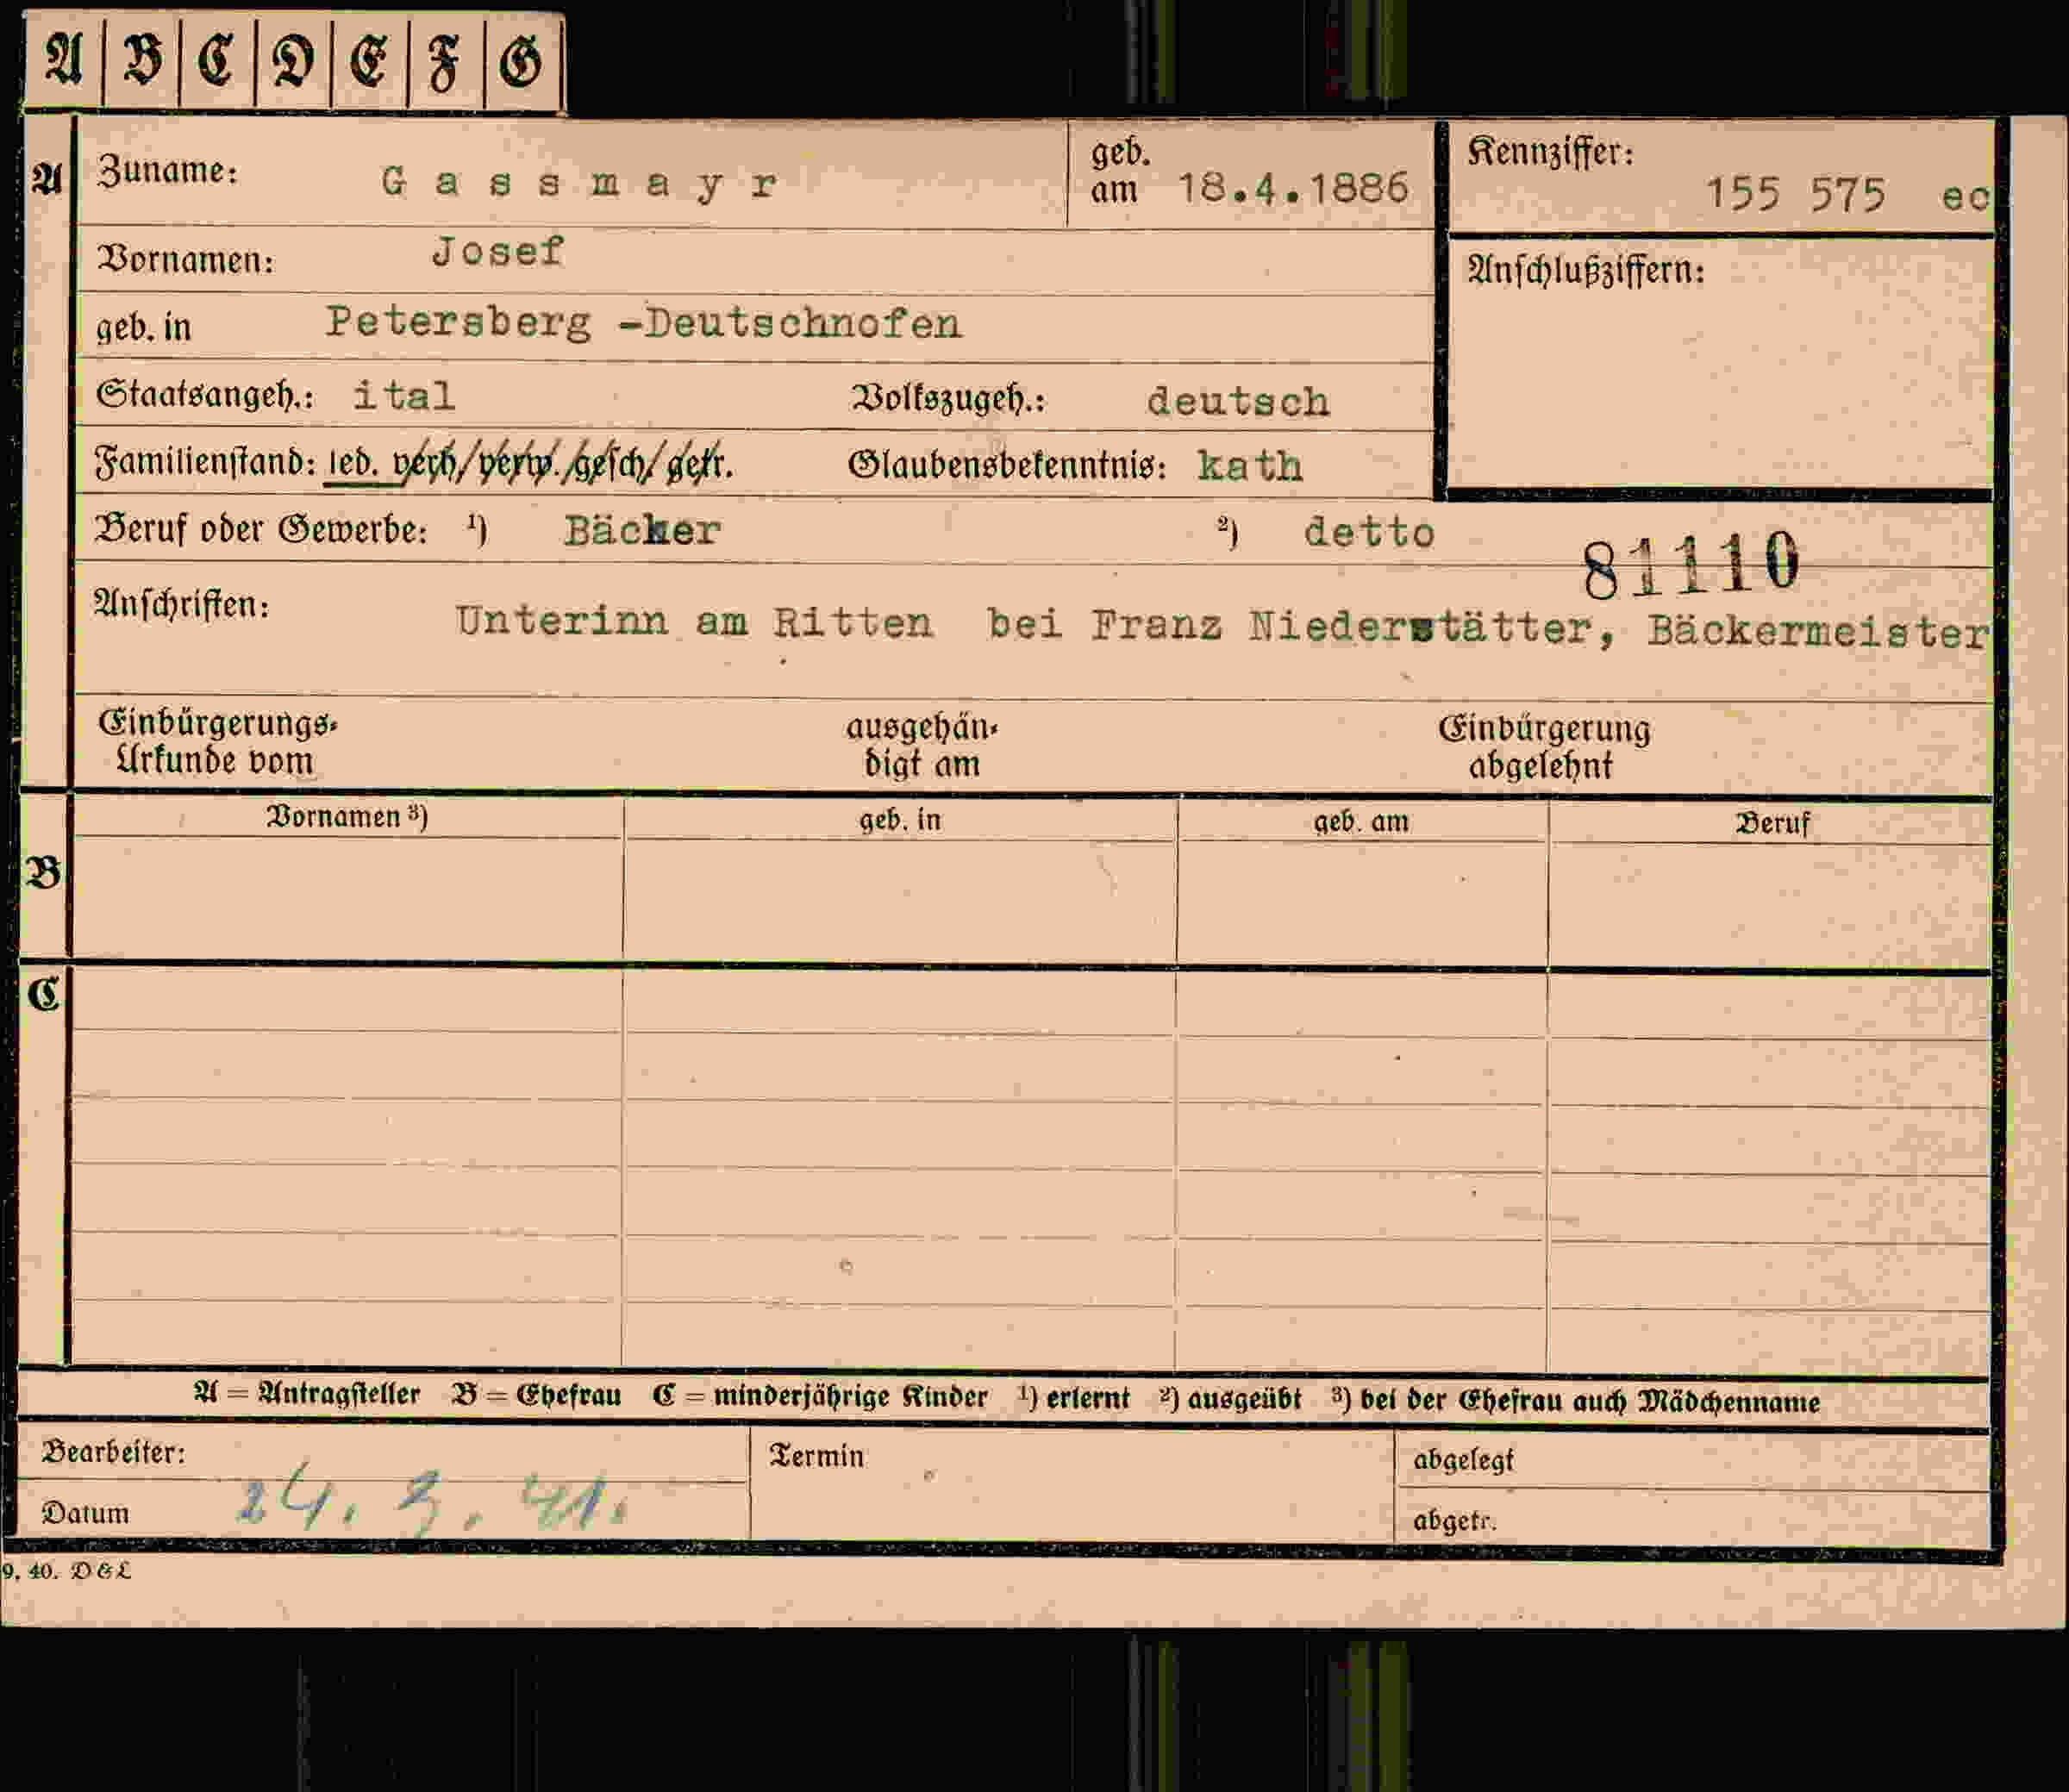 A B C D E F G
A Zuname: Gassmayr geb. am 18.4.1886 Kennziffer: 155 575 ec
Vornamen: Josef Anschlußziffern:
geb. in Petersberg -Deutschnofen
Staatsangeh.: ital Volkszugeh.: deutsch
Familienstand: led. verh/verw./gesch/getr. Glaubensbekenntnis: kath
Beruf oder Gewerbe: ¹) Bäcker ²) detto
81110
Anschriften: Unterinn am Ritten bei Franz Niederstätter, Bäckermeister
Einbürgerungs- ausgehän- Einbürgerung
Urkunde vom digt am abgelehnt
Vornamen ³) geb. in geb. am Beruf
B
C
A = Antragsteller B = Ehefrau C = minderjährige Kinder ¹) erlernt ²) ausgeübt ³) bei der Ehefrau auch Mädchenname
Bearbeiter: Termin abgelegt
Datum 24. 3. 41. abgetr.
9. 40. D&L